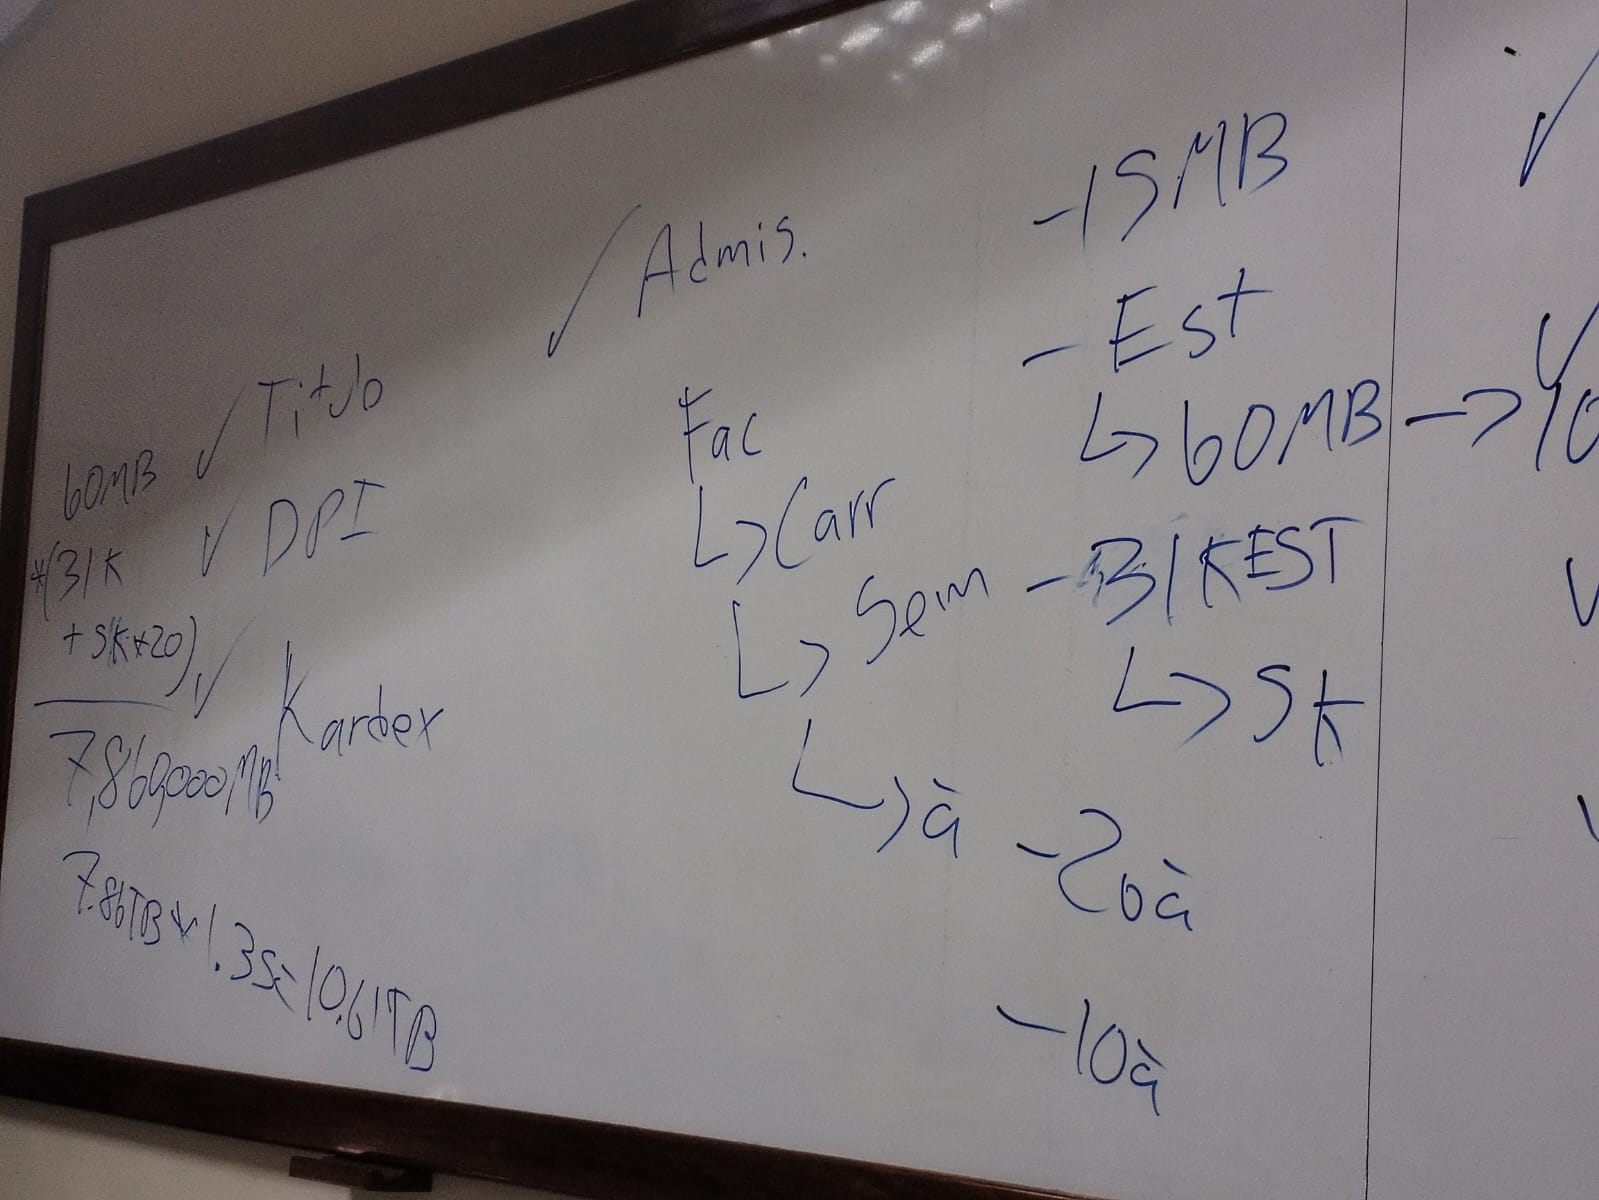 60MB
*(31K
+ 5K*20)
7,860,000MB
7.86TB * 1.35 = 10.61TB
✓ Titulo
✓ DPI
✓ Kardex
✓ Admis.
Fac
↳ Carr
↳ Sem
↳ à
- 15MB
- Est
↳ 60MB →
- 31KEST
↳ 5K
- 20à
- 10à